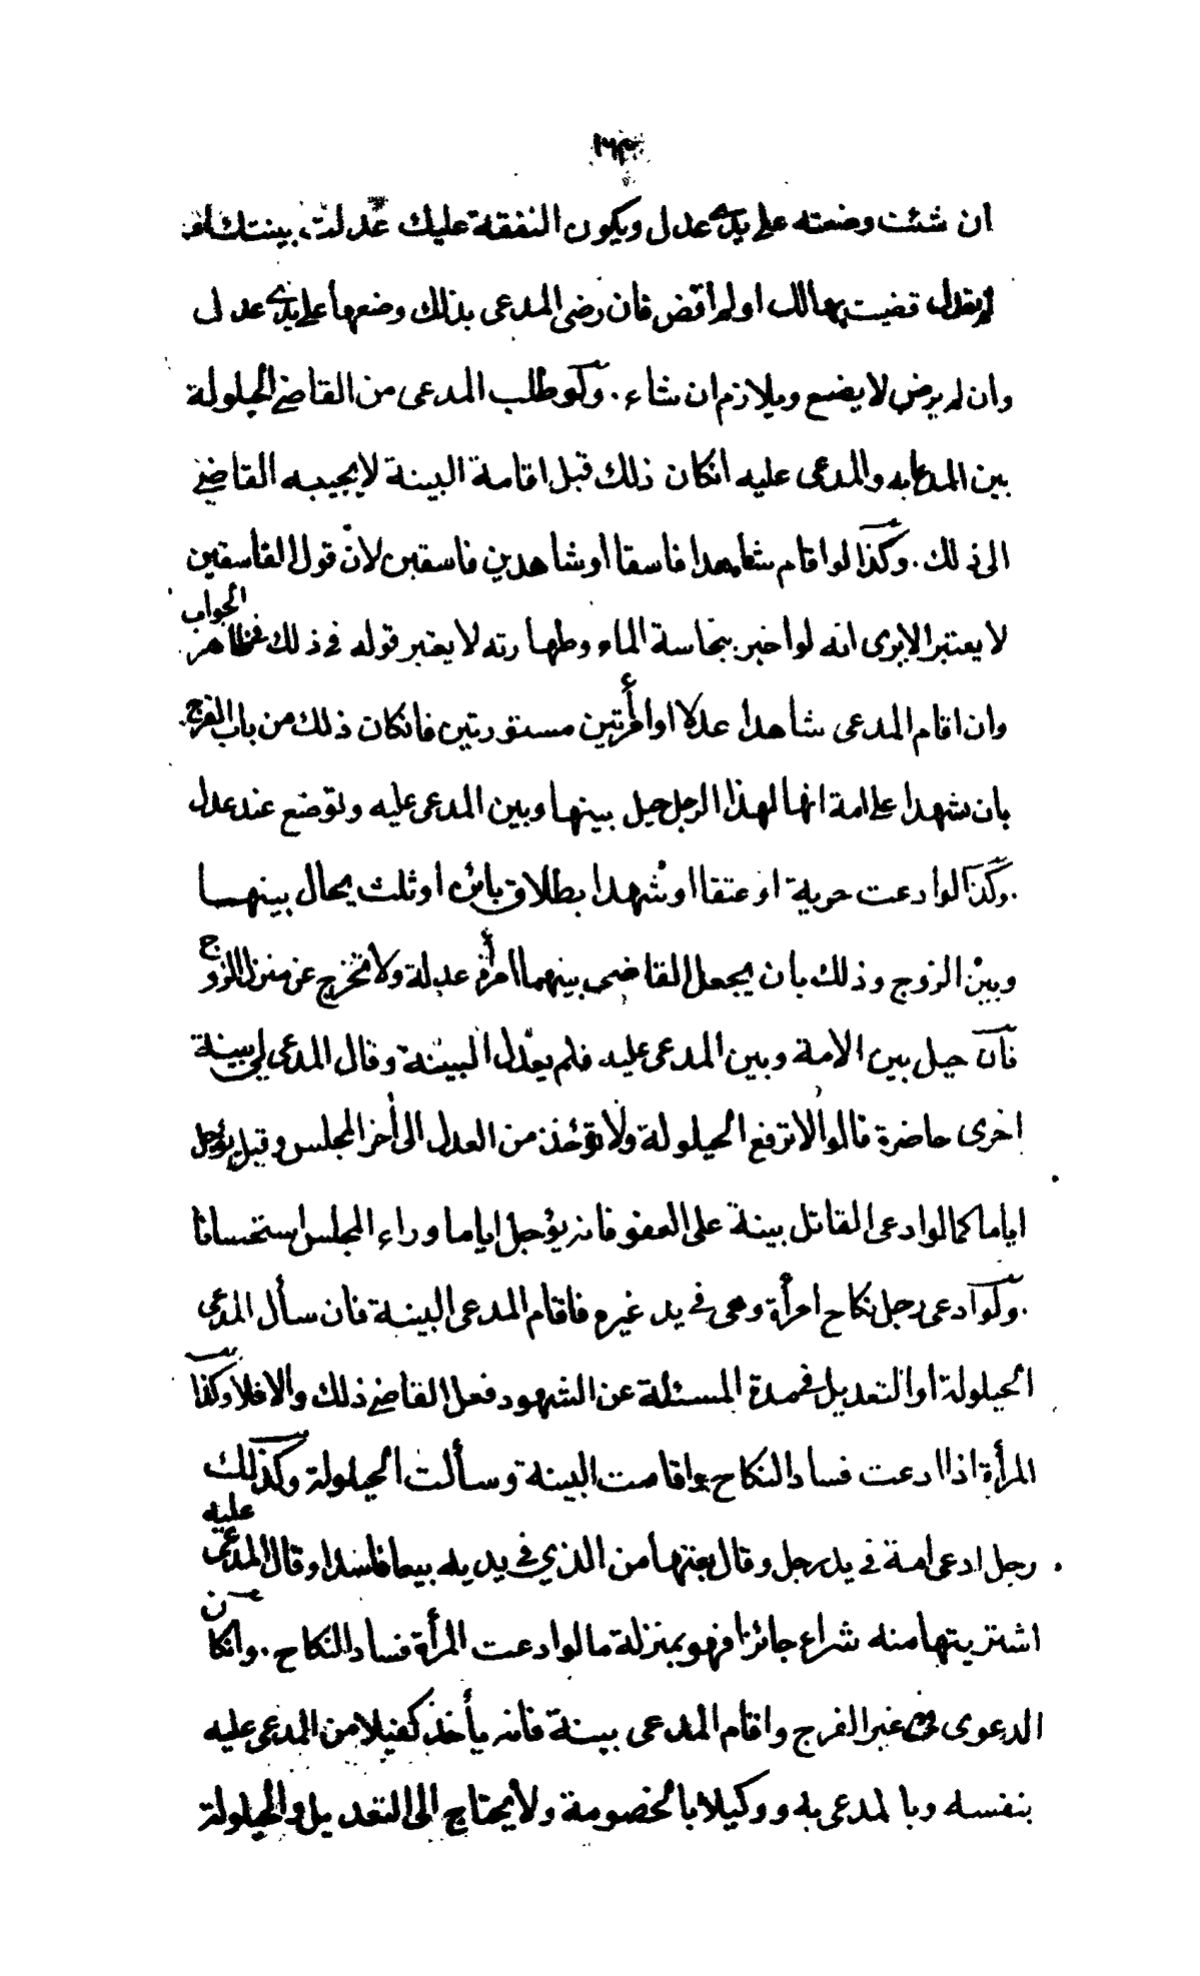 ١٦٣
ان شئت وضعته على يدى عدل ويكون النفقة عليك عدلت بينتك اف
لم تعدل قضيت بها لك او لم اقض فان رضى المدعى بذلك وضعها على يدى عدل
وان لم يرض لا يضع ويلازم ان شاء . ولو طلب المدعى من القاضى الحيلولة
بين المدعا به والمدعى عليه انكان ذلك قبل اقامة البينة لا يجيبه القاضى
الى ذلك . وكذا لو اقام شاهدا فاسقا او شاهدين فاسقين لان قول الفاسقين
لا يعتبر الا يرى انه لو اخبر بنجاسة الماء وطهارته لا يعتبر قوله فى ذلك فى ظاهر الجواب
وان اقام المدعى شاهدا عدلا او امرأتين مستورتين فانكان ذلك من باب الفرج
بان شهدا على امة انها لهذا الرجل حيل بينها وبين المدعى عليه وتوضع عند عدل
. وكذا لو ادعت حرية او عتقا او شهدا بطلاق بائن او ثلث يحال بينهما
وبين الزوج وذلك بان يجعل القاضى بينهما امرأة عدلة ولا تخرج عن منزل الزوج
فان حيل بين الامة وبين المدعى عليه فلم يعدل البينة وقال المدعى لى بينة
اخرى حاضرة قالوا لا ترفع الحيلولة ولا تؤخذ من العدل الى أخر المجلس وقيل يؤجل
اياما كما لو ادعى القاتل بينة على العفو فانه يؤجل اياما وراء المجلس استحسانا
. ولو ادعى رجل نكاح امرأة وهى فى يد غيره فاقام المدعى البينة فان سأل المدعى
الحيلولة او التعديل فى مدة المسئلة عن الشهود فعل القاضى ذلك والا فلا وكذا
المرأة اذا ادعت فساد النكاح واقامت البينة وسألت الحيلولة وكذلك
. رجل ادعى امة فى يد رجل وقال بعتها من الذي فى يديه بيعا فاسدا وقال المدعى عليه
اشتريتها منه شراء جائزا فهو بمنزلة ما لو ادعت المرأة فساد النكاح . وانكان
الدعوى فى غير الفرج واقام المدعى بينة فانه يأخذ كفيلا من المدعى عليه
بنفسه وبالمدعى به ووكيلا بالخصومة ولا يحتاج الى التعديل والحيلولة